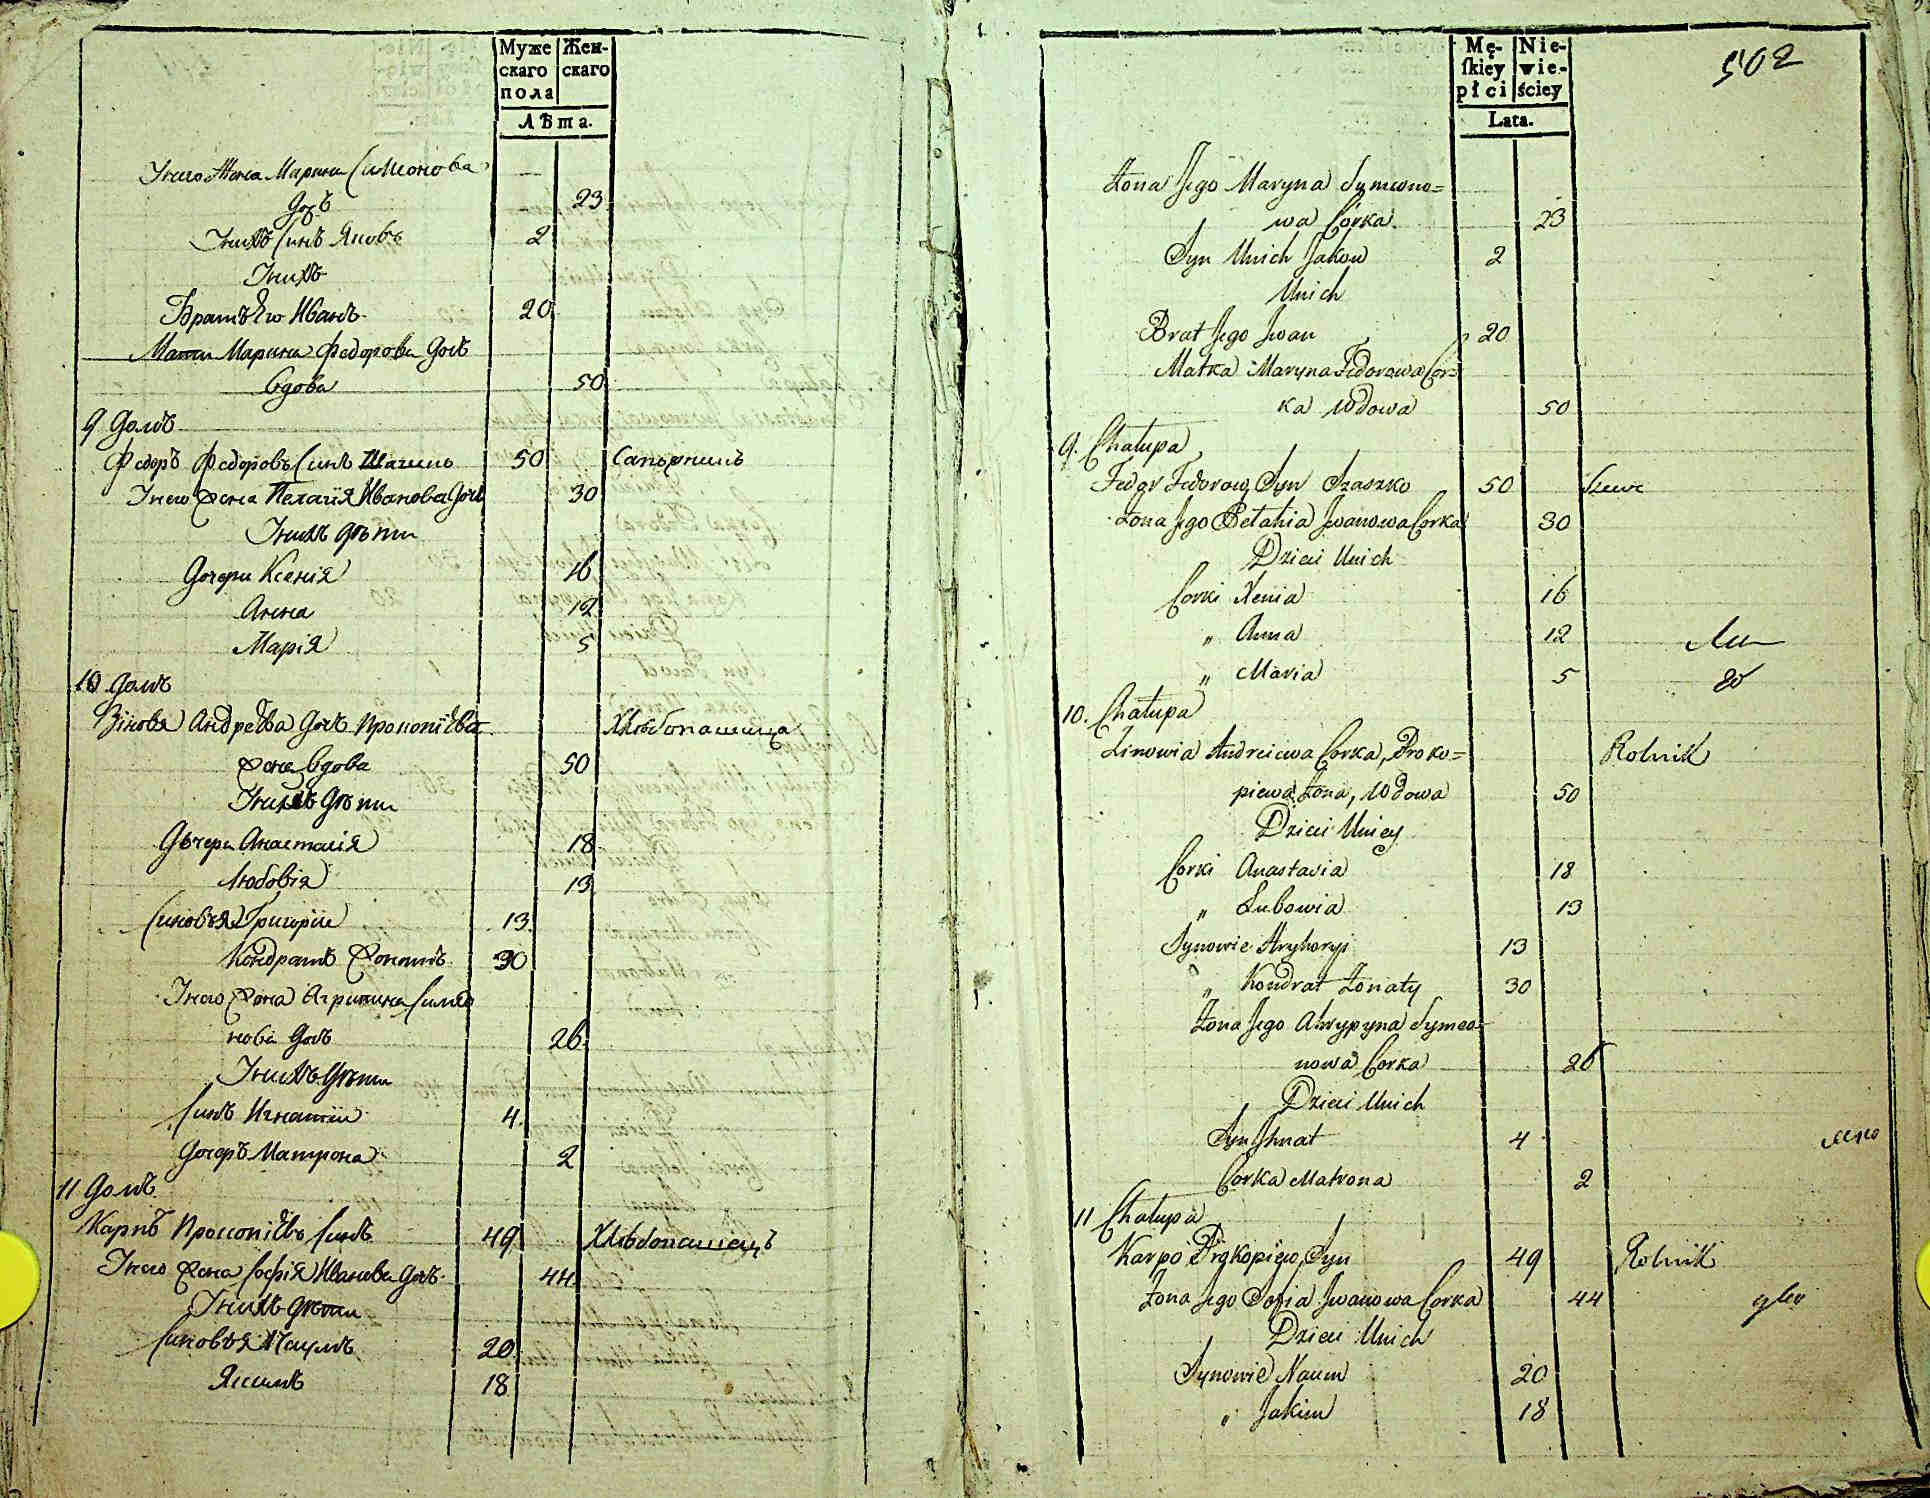 Муже
скаго
пола
Жен-
скаго
Лѣта.
Жена Марина Симонова
Дочь 23
Сынъ Яковъ 2
Братъ Его Иванъ 20
Мати Марина Федорова Дочь
Вдова 50
9 Домъ
Федоръ Федоровъ Синъ 50
Жена Пелагія Иванова Дочь 30
дѣти
Дочери Ксенія 16
Анна 12
Марія 5
10 Домъ
Зіновя Андреѣва Дочь Прокопіѣва Хлѣбопашица
Жена Вдова 50
Дѣти
Дочери Анастасія 18
Любовія 13
Синовья Григорій 13
Кондратъ Жонатъ 30
Жона Агрипина Симео
нова Дочь 26
Дѣти
Синъ Игнатій 4
Дочеръ Матрона 2
11 Домъ
Карпъ Прокопіѣвъ Синъ 49 Хлѣбопашецъ
Жена Софія Иванова Дочь 44
дѣти
Синовья Наумъ 20
Якимъ 18
502
Mę-
skiey
płci
Nie-
wie-
ściey
Lata.
Żona Jego Maryna Symeono=
wa Corka 23
Syn Unich Jakow 2
Unich
Brat Jego Jwan 20
Matka Maryna Fedorowa Cor=
ka Wdowa 50
9. Chałupa
Fedor Fedorow Syn Szaszko 50 Szewc
Żona Jego Pelahia Jwanowa Corka 30
Dzieci Unich
Corki Xenia 16
" Anna 12
" Maria 5
10. Chałupa
Zinowia Andreiewa Corka, Proko= Rolnik
piewa Żona, Wdowa 50
Dzieci Unicy
Corki Anastasia 18
" Lubowia 13
Synowie Hryhoryi 13
" Kondrat Żonaty 30
Żona Jego Ahrypyna Symeo=
nowa Corka 26
Dzieci Unich
Syn Jhnat 4
Corka Matrona 2
11 Chałupa
Karpo Prokopiew Syn 49 Rolnik
Żona Jego Sofia Jwanowa Corka 44
Dzieci Unich
Synowie Naum 20
" Jakim 18